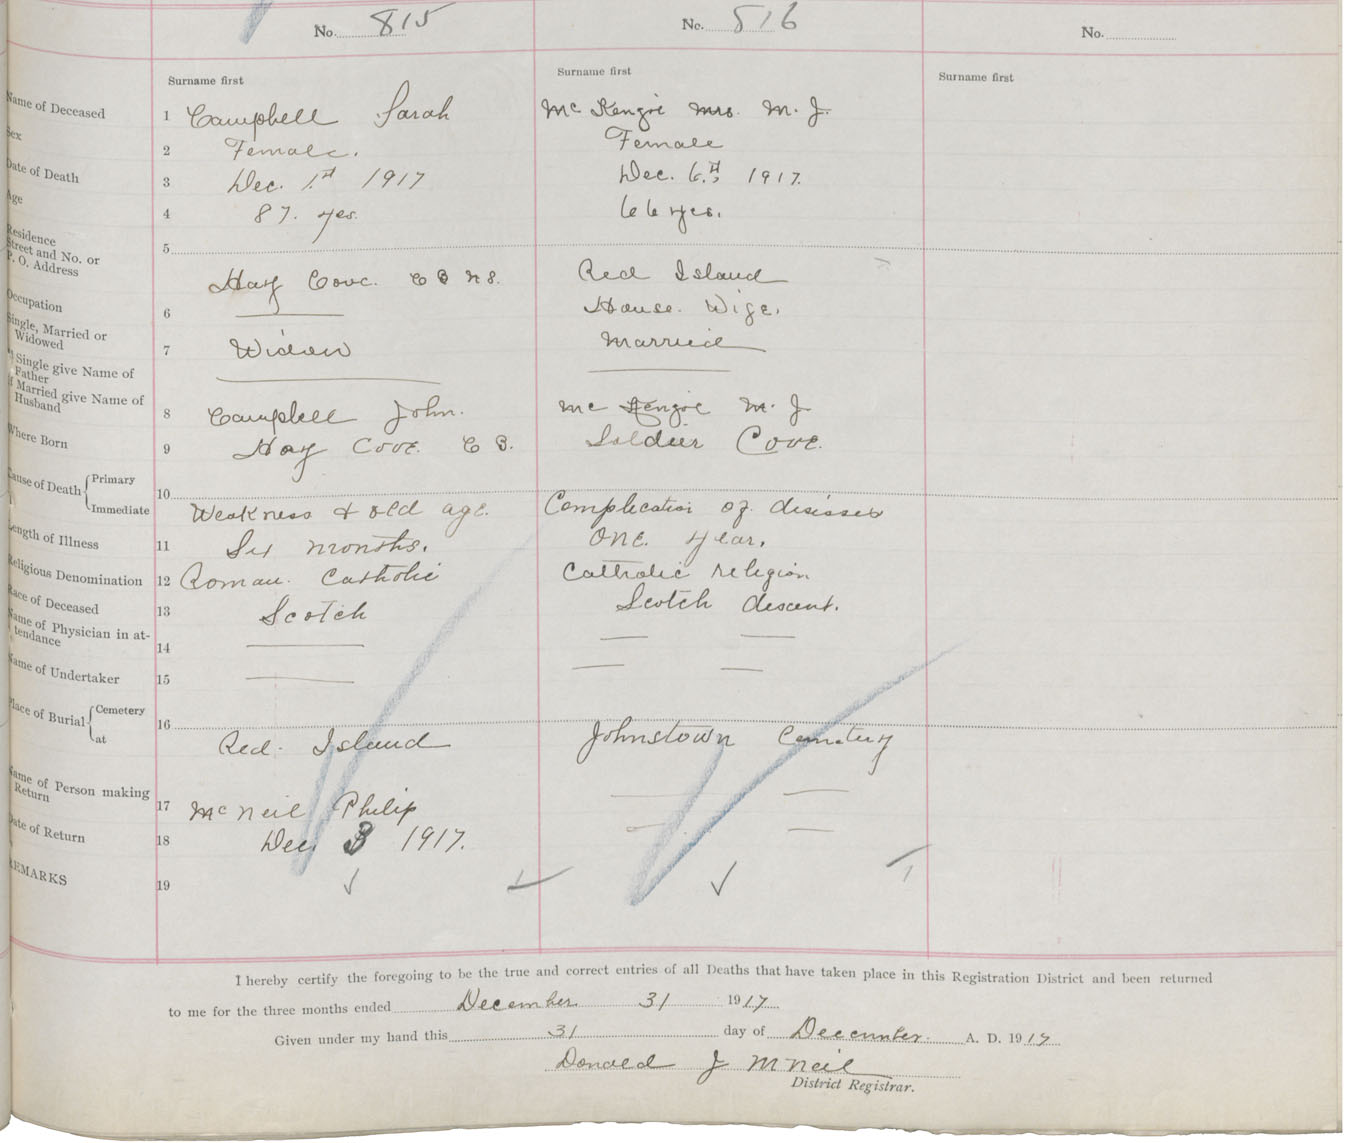 No. 815
No. 816
No.
Surname first
Surname first
Surname first
Name of Deceased 1 Campbell Sarah
Mc Kengie Mrs. M. J.
Sex 2 Female.
Female
Date of Death 3 Dec. 1st 1917
Dec. 6th, 1917.
Age 4 87. yes.
66 yes.
Residence
Street and No. or
P. O. Address
5 Hay Cove. C B N S.
Red Island
Occupation 6
House. Wife.
Single, Married or
Widowed
7 Widow
Married
If Single give Name of
Father
If Married give Name of
Husband
8 Campbell John.
Mc Kengie M. J
Where Born 9 Hay Cove. C B.
Soldier Cove.
Cause of Death { Primary
Immediate
10 Weakness & old age.
Complication of disises
Length of Illness 11 Six months.
one. year.
Religious Denomination 12 Roman. Catholic
Catholic religion
Race of Deceased 13 Scotch
Scotch descent.
Name of Physician in at-
tendance
14
Name of Undertaker 15
Place of Burial { Cemetery
at
16 Red. Island
Johnstown Cemetery
Name of Person making
Return
17 Mc Neil Philip
Date of Return 18 Dec. 3 1917.
REMARKS 19
I hereby certify the foregoing to be the true and correct entries of all Deaths that have taken place in this Registration District and been returned
to me for the three months ended December 31 1917
Given under my hand this 31 day of December. A. D. 1917
Donald J McNeil
District Registrar.